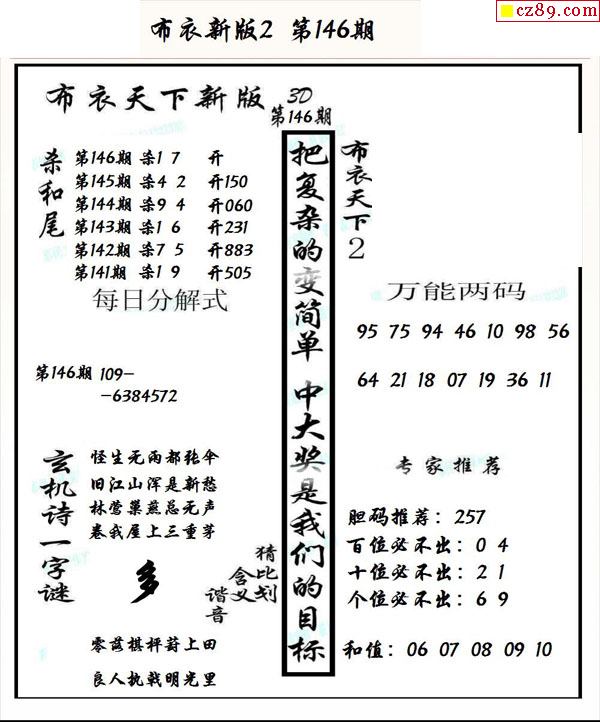 cz89.com
布衣新版2 第146期
布衣天下新版 3D
第146期
杀和尾
第146期 杀1 7 开
第145期 杀4 2 开150
第144期 杀9 4 开060
第143期 杀1 6 开231
第142期 杀7 5 开883
第141期 杀1 9 开505
每日分解式
第146期 109-
-6384572
玄机诗一字谜
怪生无雨都张伞
旧江山浑是新愁
林莺巢燕总无声
卷我屋上三重茅
多
猜比划
含义
谐音
零落棋枰葑上田
良人执戟明光里
把复杂的变简单 中大奖是我们的目标
布衣天下2
万能两码
95 75 94 46 10 98 56
64 21 18 07 19 36 11
专家推荐
胆码推荐：257
百位必不出：0 4
十位必不出：2 1
个位必不出：6 9
和值：06 07 08 09 10